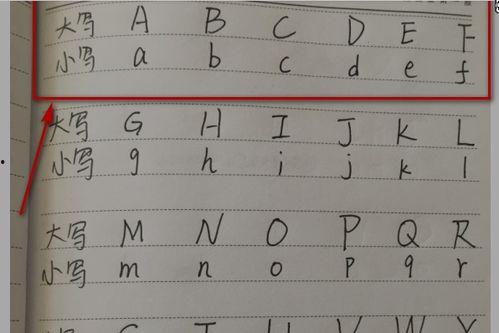 大写 A B C D E F
小写 a b c d e f
大写 G H I J K L
小写 g h i j k l
大写 M N O P Q R
小写 m n o p q r